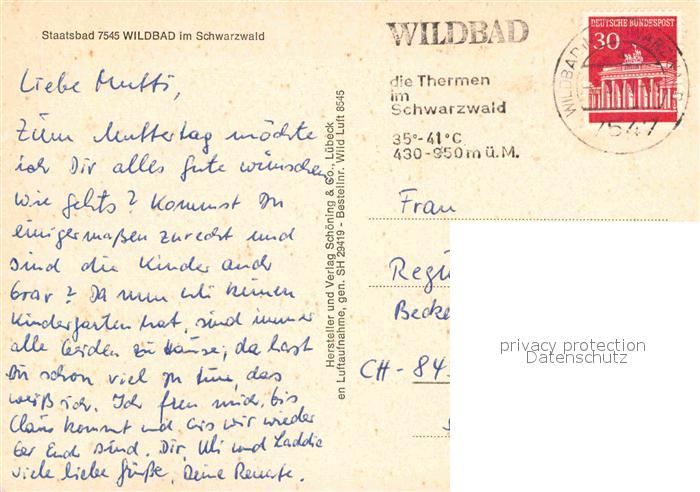 Staatsbad 7545 WILDBAD im Schwarzwald
Liebe Mutti,
Zum Muttertag möchte
ich Dir alles gute wünschen
wie gehts? Kommst Du
einigermaßen zurecht und
sind die Kinder auch
brav? Da nun Uli keinen
Kindergarten hat, sind immer
alle beiden zu Hause, da hast
Du schon viel zu tun, das
weiß ich. Ich freu mich, bis
Claus kommt und bis wir wieder
bei Euch sind. Dir, Uli und
viele liebe Grüße, Deine Renate.
Hersteller und Verlag Schöning & Co., Lübeck
en Luftaufnahme, gen. SH 29419 - Bestellnr. Wild Luft 8545
WILDBAD
die Thermen
im
Schwarzwald
35°-41°C
430-950 m ü. M.
DEUTSCHE BUNDESPOST
30
WILDBAD
7547
Frau
Regi
Becke
CH - 84
privacy protection
Datenschutz